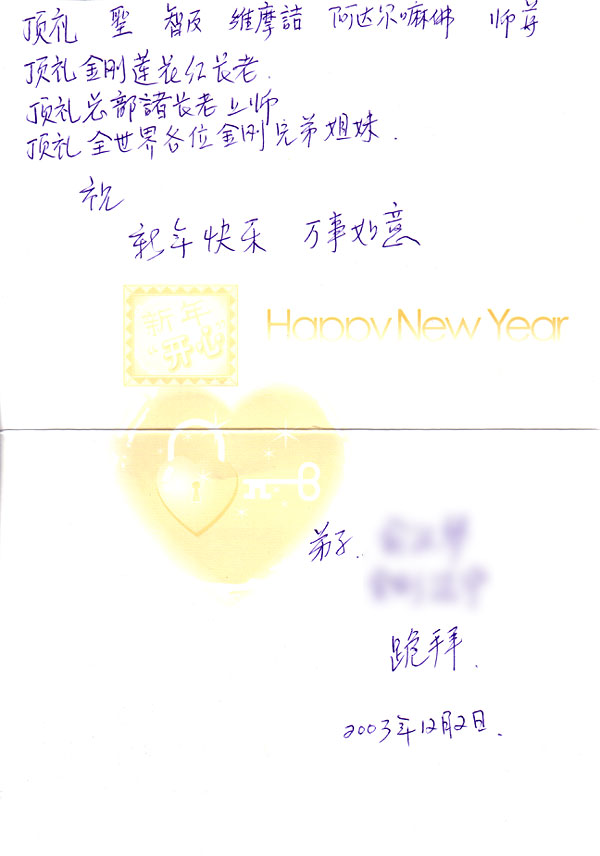 顶礼 聖 智 维摩詰 阿达尔嘛佛 师尊
顶礼金刚莲花红长老.
顶礼总部諸长老上师
顶礼全世界各位金刚兄弟姐妹.
祝
新年快乐 万事如意
新年
开心
Happy New Year
弟子.
跪拜.
2003年12月2日.